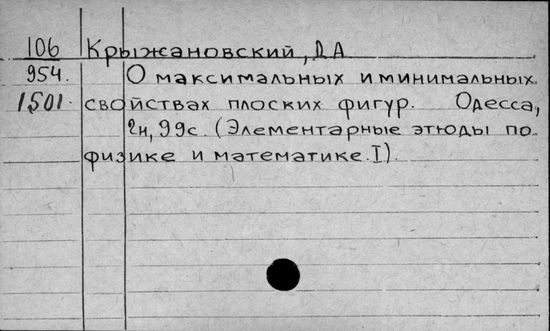 106 Крыжановский, Д А
954. О максимальных и минимальных
1501. свойствах плоских фигур. Одесса,
99с. (Элементарные этюды по
физике и математике. I).